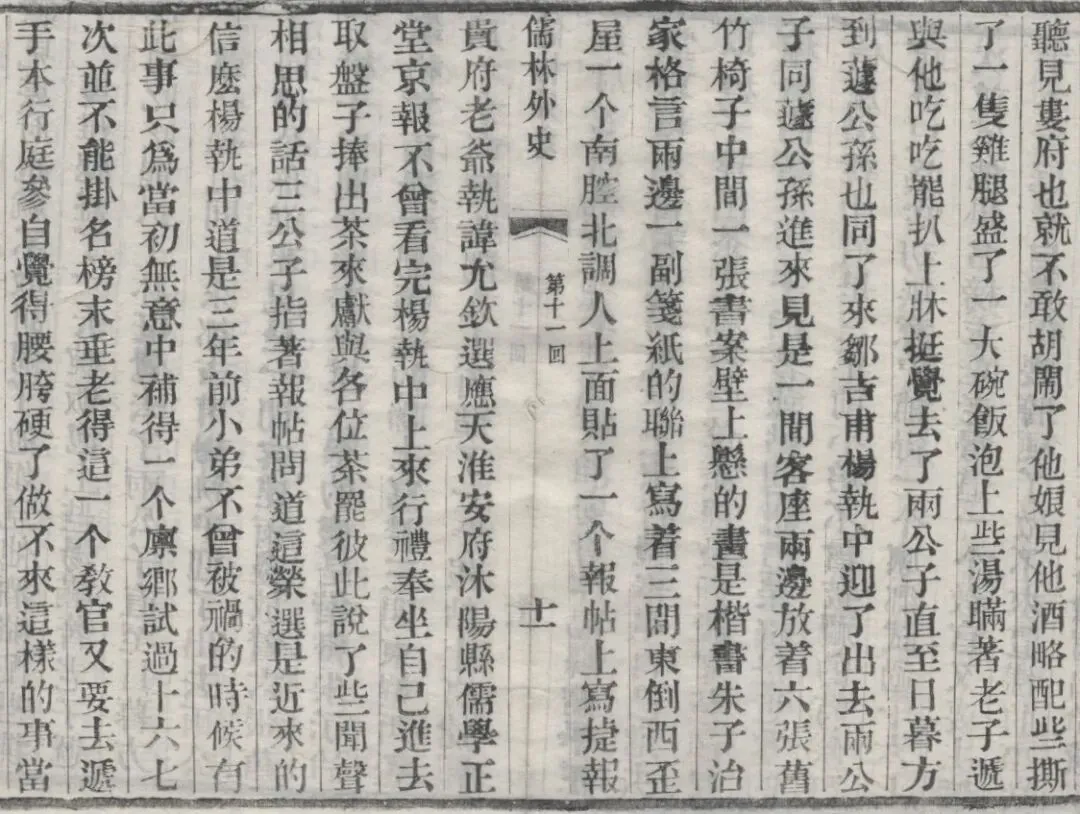 聽見婁府也就不敢胡鬧了他娘見他酒略配些撕
了一隻雞腿盛了一大碗飯泡上些湯瞞著老子遞
與他吃吃罷扒上牀挺覺去了兩公子直至日暮方
到蘧公孫也同了來鄒吉甫楊執中迎了出去兩公
子同蘧公孫進來見是一間客座兩邊放着六張舊
竹椅子中間一張書案壁上懸的畫是楷書朱子治
家格言兩邊一副箋紙的聯上寫着三間東倒西歪
屋一个南腔北調人上面貼了一个報帖上寫捷報
儒林外史
第十一回
十一
貴府老爺執諱允欽選應天淮安府沐陽縣儒學正
堂京報不曾看完楊執中上來行禮奉坐自己進去
取盤子捧出茶來獻與各位茶罷彼此說了些聞聲
相思的話三公子指著報帖問道這榮選是近來的
信麽楊執中道是三年前小弟不曾被禍的時候有
此事只爲當初無意中補得一个廩鄉試過十六七
次並不能掛名榜末垂老得這一个敎官又要去遞
手本行庭參自覺得腰胯硬了做不來這樣的事當